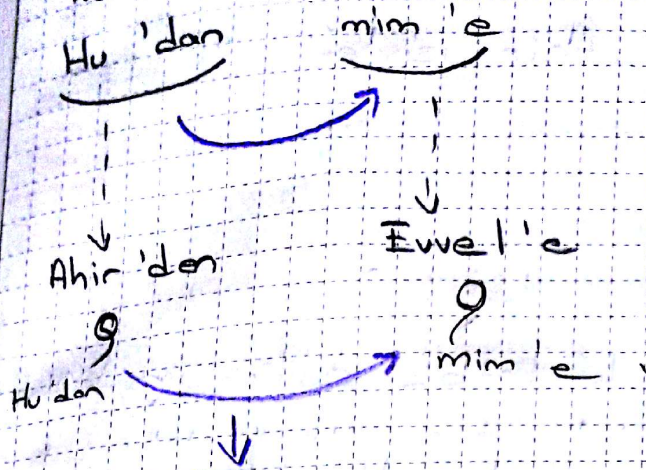 Hu 'dan mim 'e
Ahir 'den Evvel 'e
Hu'dan mim 'e